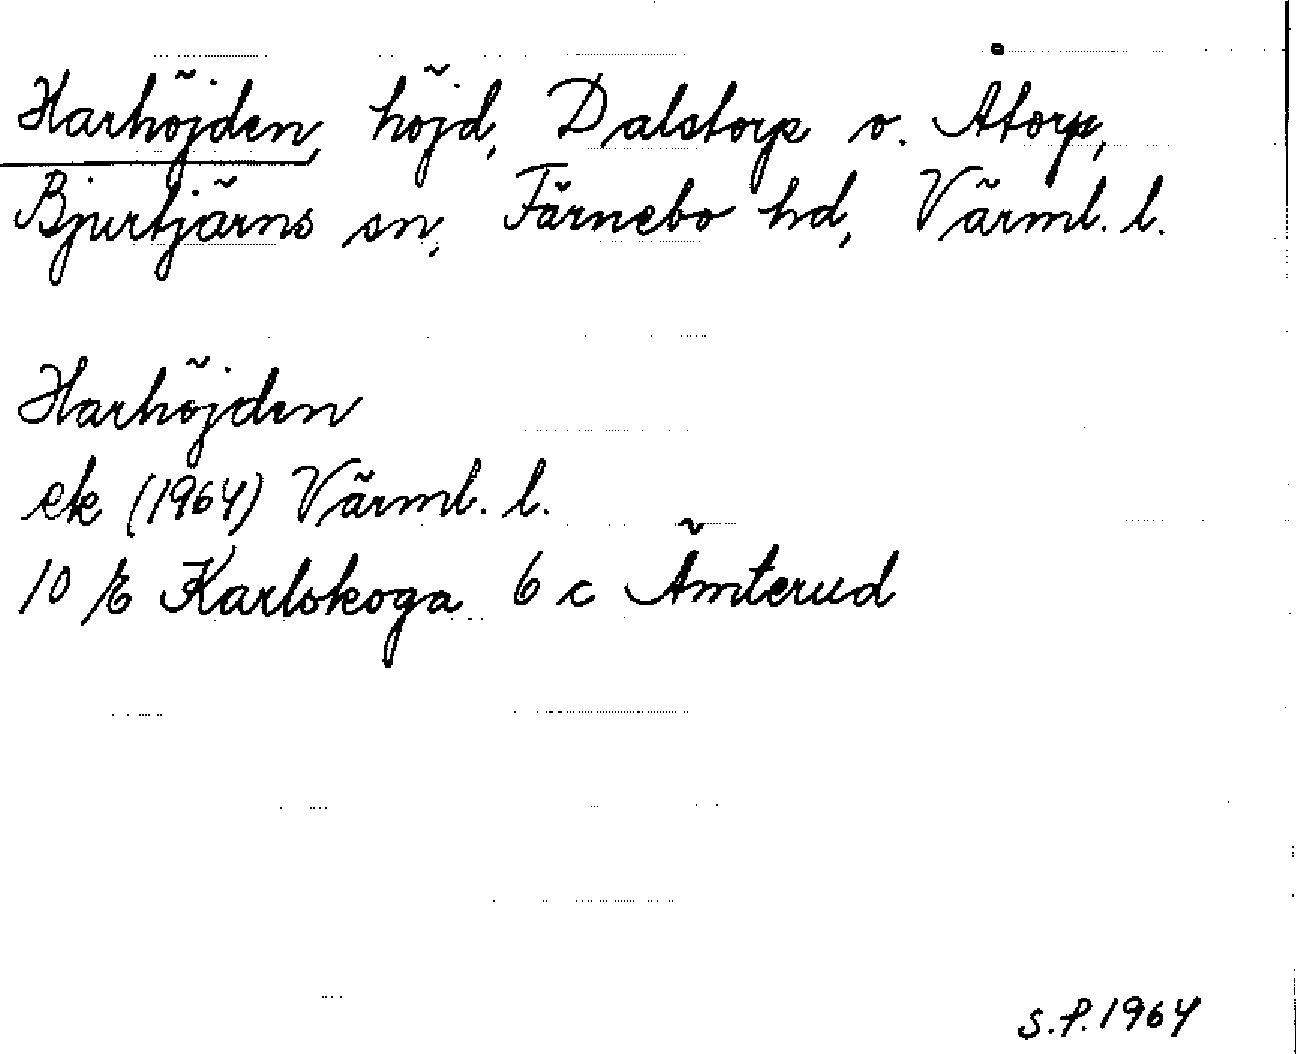 Harhöjden, höjd, Dalstorp o. Åtorp,
Bjurtjärns sn, Färnebo hd, Värml. l.
Harhöjden
ek (1964) Värml. l.
10 E Karlskoga 6 c Ämterud
S.P. 1964